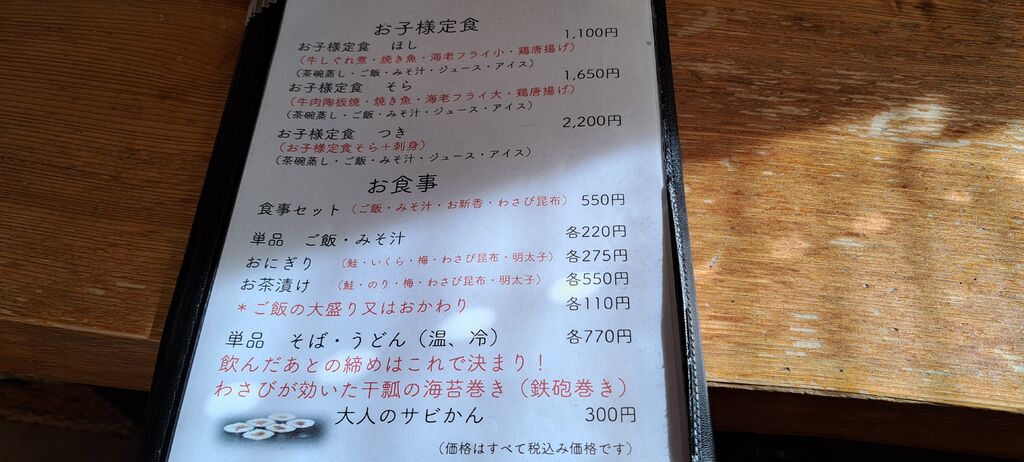 お子様定食
お子様定食　ほし　1,100円
（牛しぐれ煮・焼き魚・海老フライ小・鶏唐揚げ）
（茶碗蒸し・ご飯・みそ汁・ジュース・アイス）
お子様定食　そら　1,650円
（牛肉陶板焼・焼き魚・海老フライ大・鶏唐揚げ）
（茶碗蒸し・ご飯・みそ汁・ジュース・アイス）
お子様定食　つき　2,200円
（お子様定食そら＋刺身）
（茶碗蒸し・ご飯・みそ汁・ジュース・アイス）
お食事
食事セット（ご飯・みそ汁・お新香・わさび昆布）　550円
単品　ご飯・みそ汁　各220円
おにぎり　（鮭・いくら・梅・わさび昆布・明太子）　各275円
お茶漬け　（鮭・のり・梅・わさび昆布・明太子）　各550円
＊ご飯の大盛り又はおかわり　各110円
単品　そば・うどん（温、冷）　各770円
飲んだあとの締めはこれで決まり！
わさびが効いた干瓢の海苔巻き（鉄砲巻き）
大人のサビかん　300円
（価格はすべて税込み価格です）